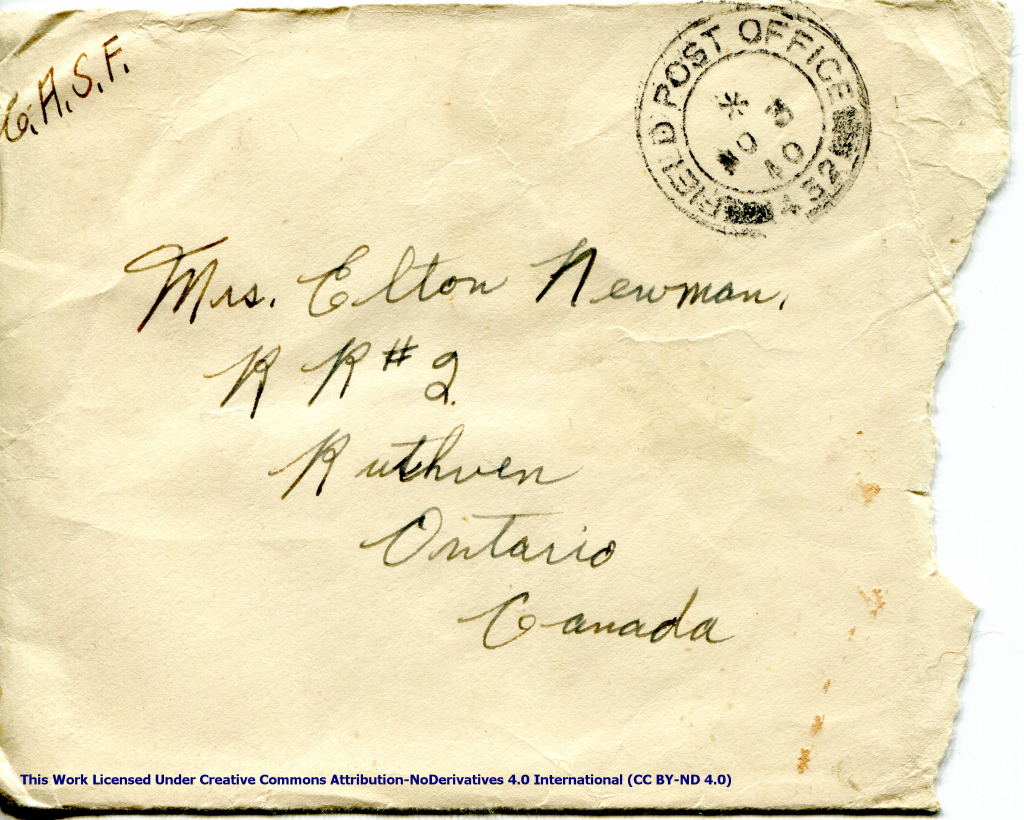 C.A.S.F.
FIELD POST OFFICE
452
40
Mrs. Elton Newman.
R R # 2.
Ruthven
Ontario
Canada
This Work Licensed Under Creative Commons Attribution-NoDerivatives 4.0 International (CC BY-ND 4.0)